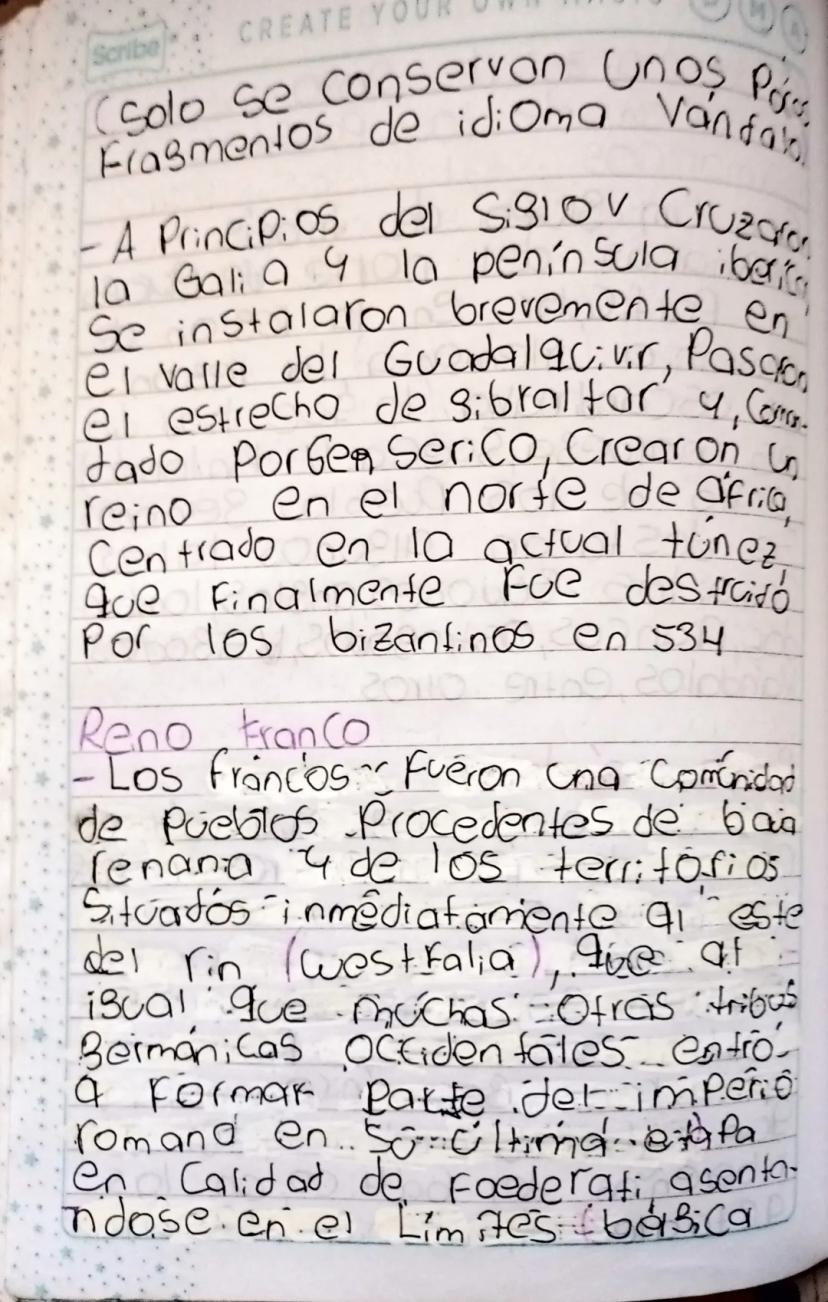 Scribe
CREATE YOUR OWN
(Solo se conservan unos
Fragmentos de idioma Vándalo
- A Principios del Siglo V Cruzaron
la Galia y la península iberica
Se instalaron brevemente en
el valle del Guadalquivir, Pasaron
el estrecho de gibraltar y, Coman-
dado Por Gen Serico, Crearon un
reino en el norte de áfrica,
Centrado en la actual túnez
que Finalmente Fue destruido
Por los bizantinos en 534
Reno Franco
- Los francos Fueron una Comunidad
de Pueblos Procedentes de baja
renana y de los territorios
Situados inmediatamente al este
del rin (westfalia), que al
igual que muchas otras tribus
Germánicas occidentales entró
a Formar Parte del imperio
romano en su última etapa
en Calidad de Foederati, asenta-
ndose en el Limites (bélgica